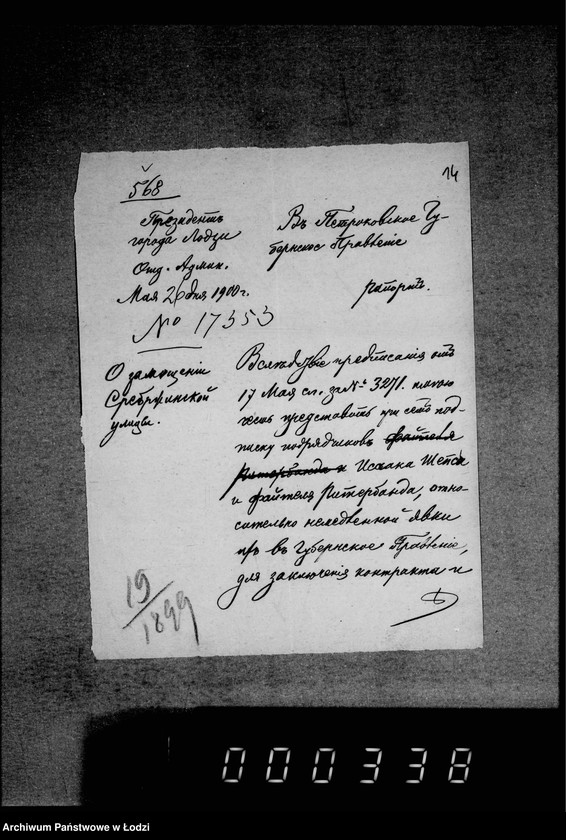 568
14
Президентъ
города Лодзи
Отд. Админ.
Мая 26 дня 1900 г.
№ 17353
Въ Петроковское Гу-
бернское Правленіе
рапортъ.
О замощеніи
Сребржинской
улицы.
Вслѣдствіе предписанія отъ
17 Мая с.г. за № 3271. имѣю
честь представить при семъ под-
писку подрядчиковъ Файтеля
Ритербанда и Исаака Шепса
и Файтеля Ритербанда, отно-
сительно немедленной явки
ихъ въ Губернское Правленіе,
для заключенія контракта и
19/1899
000338
Archiwum Państwowe w Łodzi